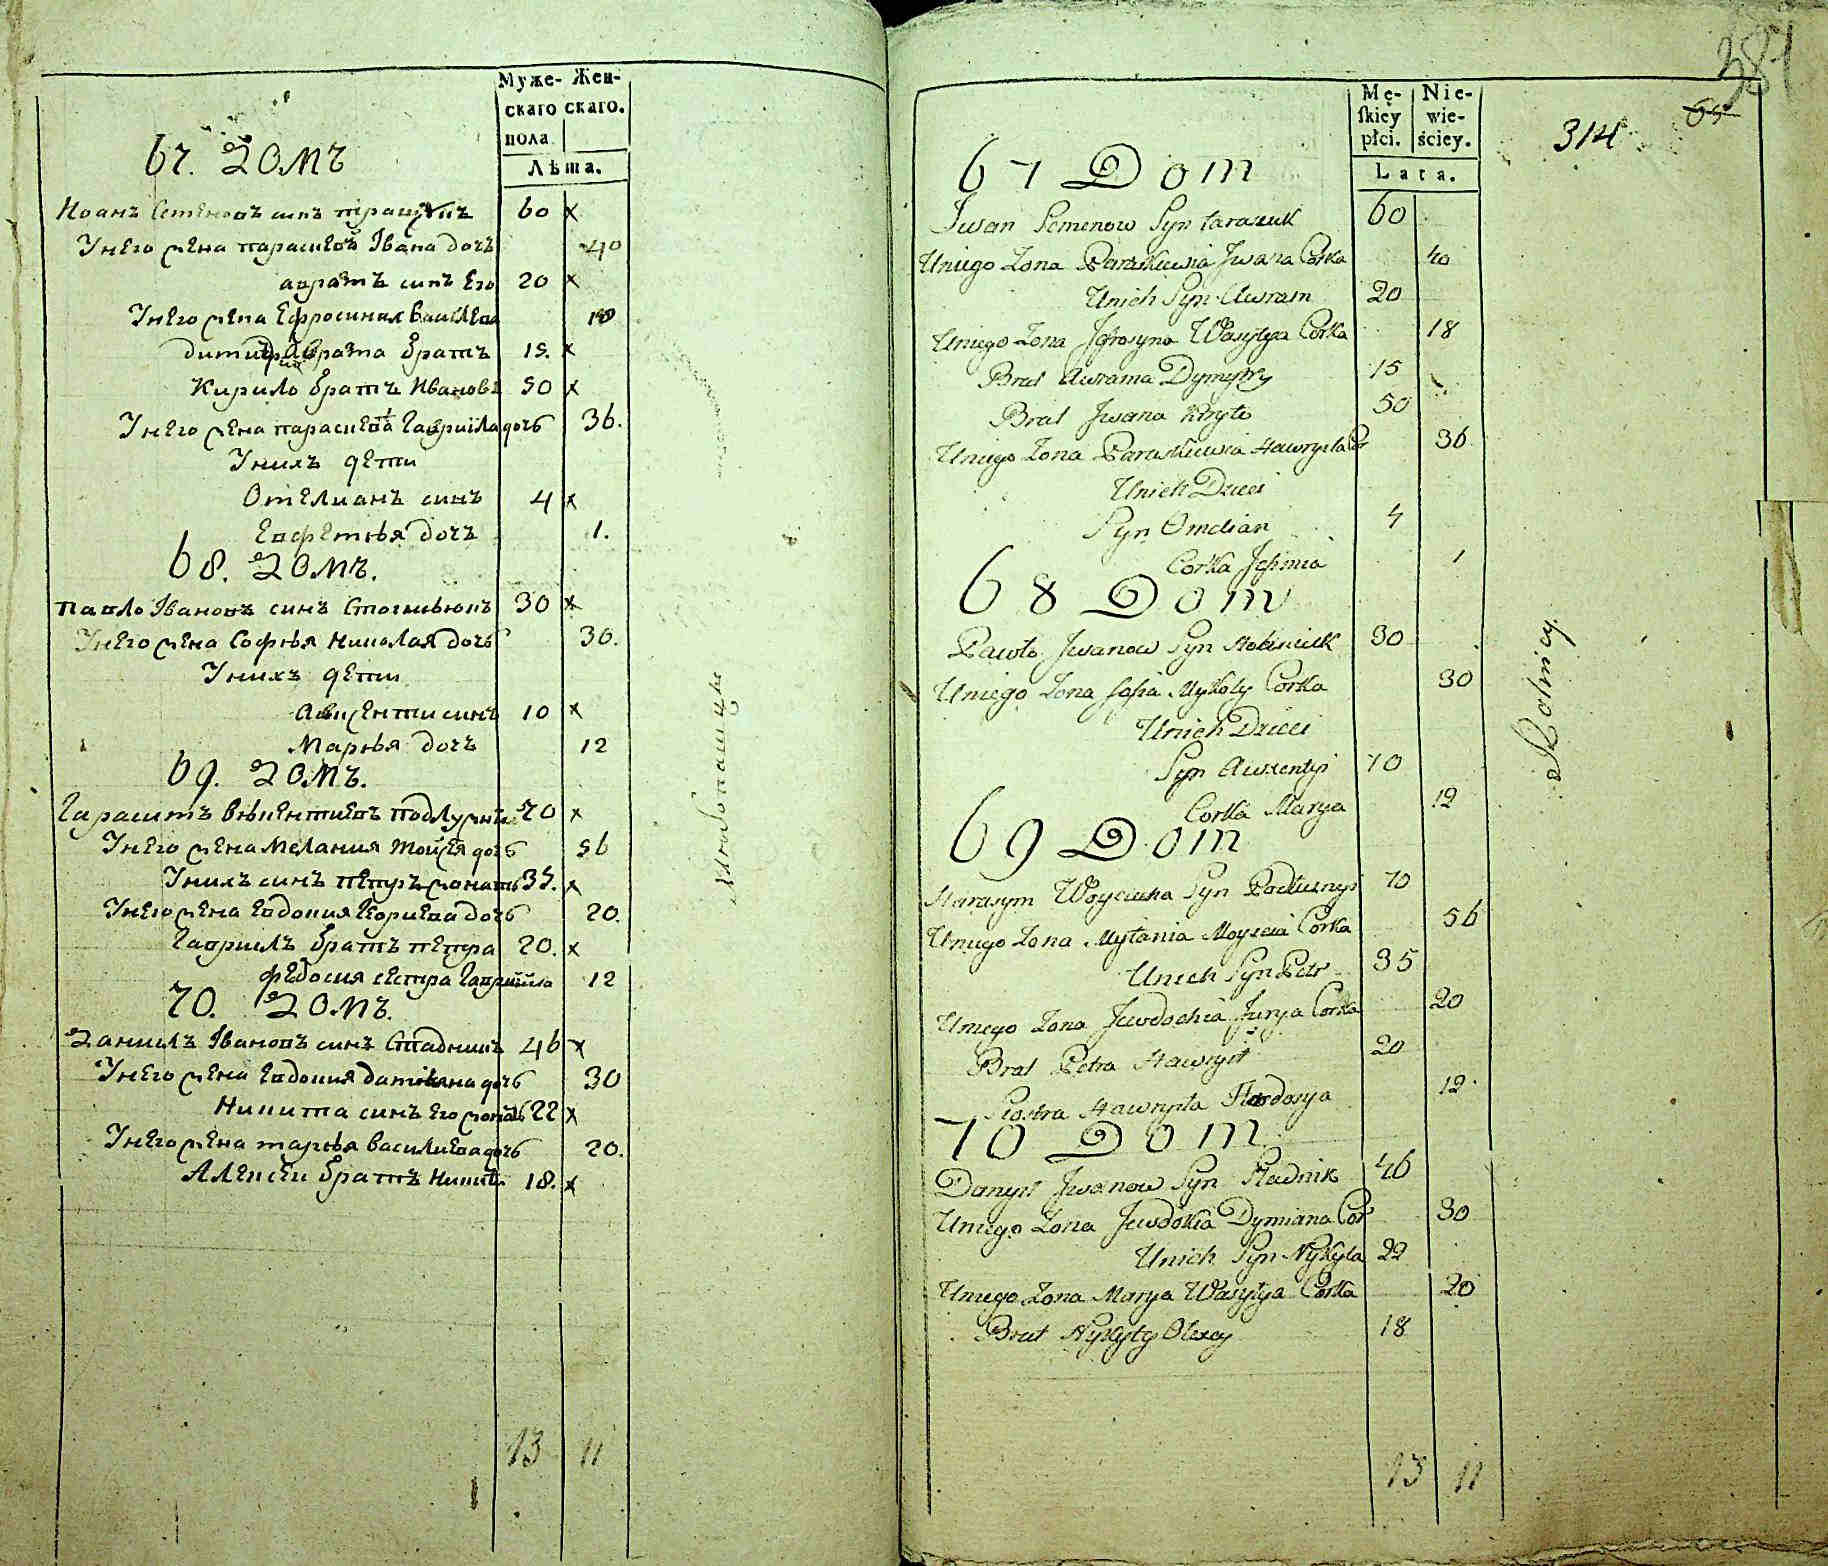 Муже- Жен-
скаго скаго.
пола
Лѣта.
67. Домъ
Иоанъ Семеновъ синъ 60 x
Унего жена параскевъ Івана дочъ 40
аврамъ синъ Его 20 x
Унего жена Ефросиния Василева 18
димитрий аврама братъ 15. x
Кирило братъ Ивановъ 50 x
Унего жена параскева Гавриила дочъ 36.
Унихъ дети
Омелианъ синъ 4 x
Евфемъя дочъ 1.
68. Домъ.
павло Івановъ синъ 30 x
Унего жена Софъя Николая дочъ 30.
Унихъ дети
Авксенти синъ 10 x
Маръя дочъ 12
69. Домъ.
Гарасимъ 70 x
Унего жена Мелания Мойсея дочъ 56
Унихъ синъ петръ жонатъ 35. x
Унего жена Евдокия Юриева дочъ 20.
Гаврилъ братъ петра 20. x
Федосия сестра Гавриила 12
70. Домъ.
Данилъ Івановъ синъ Стадникъ 46 x
Унего жена Евдокия дамияна дочъ 30
Никита синъ Его жонатъ 22 x
Унего жена маръя василиева дочъ 20.
Алексеи братъ Никит. 18. x
13 11
Хлѣбопашцы
Mę- Nie-
skiey wie-
płci. ściey.
Lata.
381
65
314
67 Dom
Iwan Semenow Syn Tarasiuk 60
Uniego Zona Paraskiewia Iwana Corka 40
Unich Syn Awram 20
Uniego Zona Jefrosyna Wasyłya Corka 18
Brat Awrama Dymytry 15
Brat Iwana Kiryło 50
Uniego Zona Paraskiewia Hawryła Cor 36
Unich Dzieci
Syn Omelian 4
Corka Jefimia 1
68 Dom
Pawło Iwanow Syn 30
Uniego Zona Sofia Mykoły Corka 30
Unich Dzieci
Syn Awxentyi 10
Corka Marya 12
69 Dom
Harasym Syn Podłużnyi 70
Uniego Zona Myłania Moyseia Corka 56
Unich Syn Petr 35
Uniego Zona Jewdochia Jurya Corka 20
Brat Petra Hawryło 20
Siostra Hawryła Fedosya 12
70 Dom
Danyło Iwanow Syn Stadnik 46
Uniego Zona Jewdokia Dymiana Cor 30
Unich Syn Nykyta 22
Uniego Zona Marya Wasyłya Corka 20
Brat Nykyty Olexey 18
13 11
Rolnicy